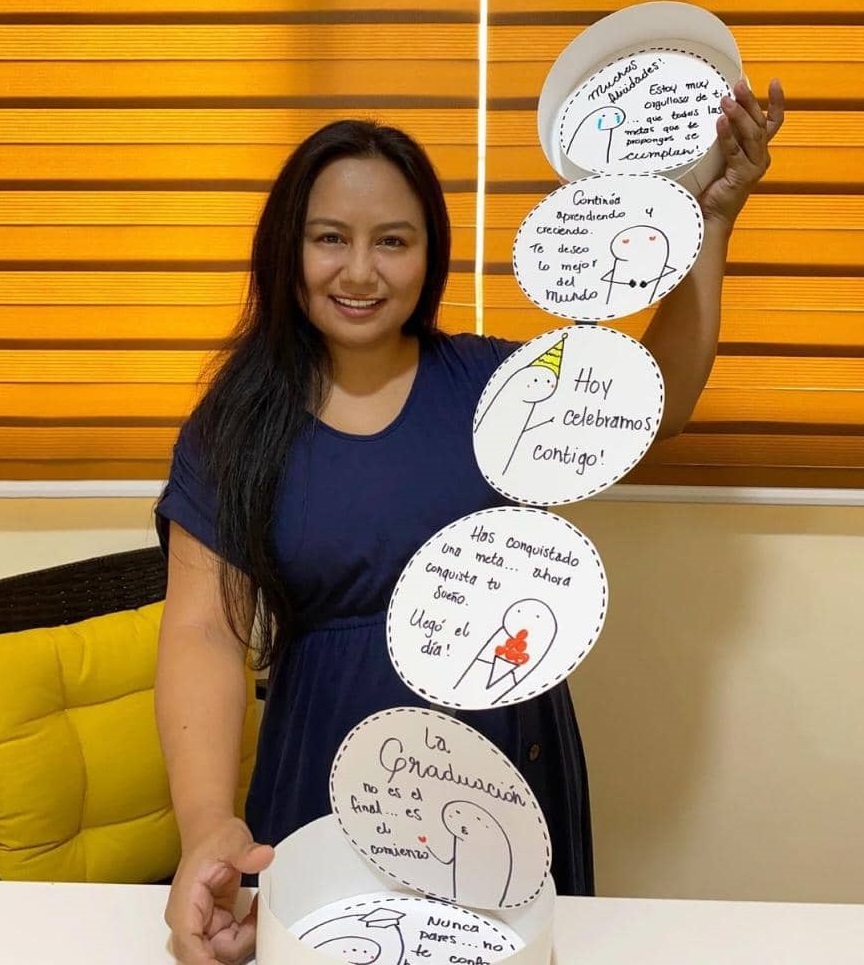 Muchas
felicidades!
Estoy muy
orgullosa de ti
... que todas las
metas que te
propongas se
cumplan!
Continúa
aprendiendo y
creciendo.
Te deseo
lo mejor
del
mundo
Hoy
celebramos
contigo!
Has conquistado
una meta... ahora
conquista tu
sueño.
Llegó el
día!
La
Graduación
no es el
final... es
el
comienzo
Nunca
pares... no
te